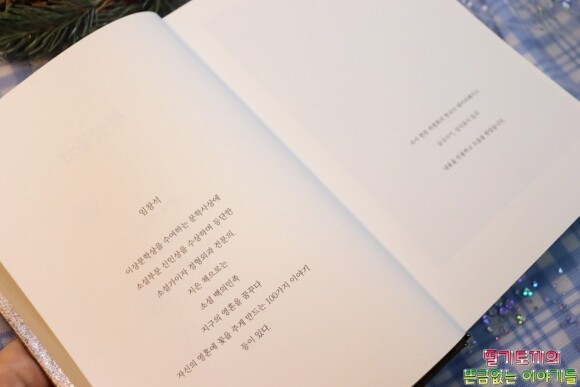 임창석
이상문학상을 수여하는 문학사상에
소설부문 신인상을 수상하며 등단한
소설가이자 정형외과 전문의.
지은 책으로는
소설 백의민족
지구의 영혼을 꿈꾸다
자신의 영혼에 꽃을 주게 만드는 100가지 이야기
등이 있다.
내용을
딸기토끼의
뜬금없는 이야기들